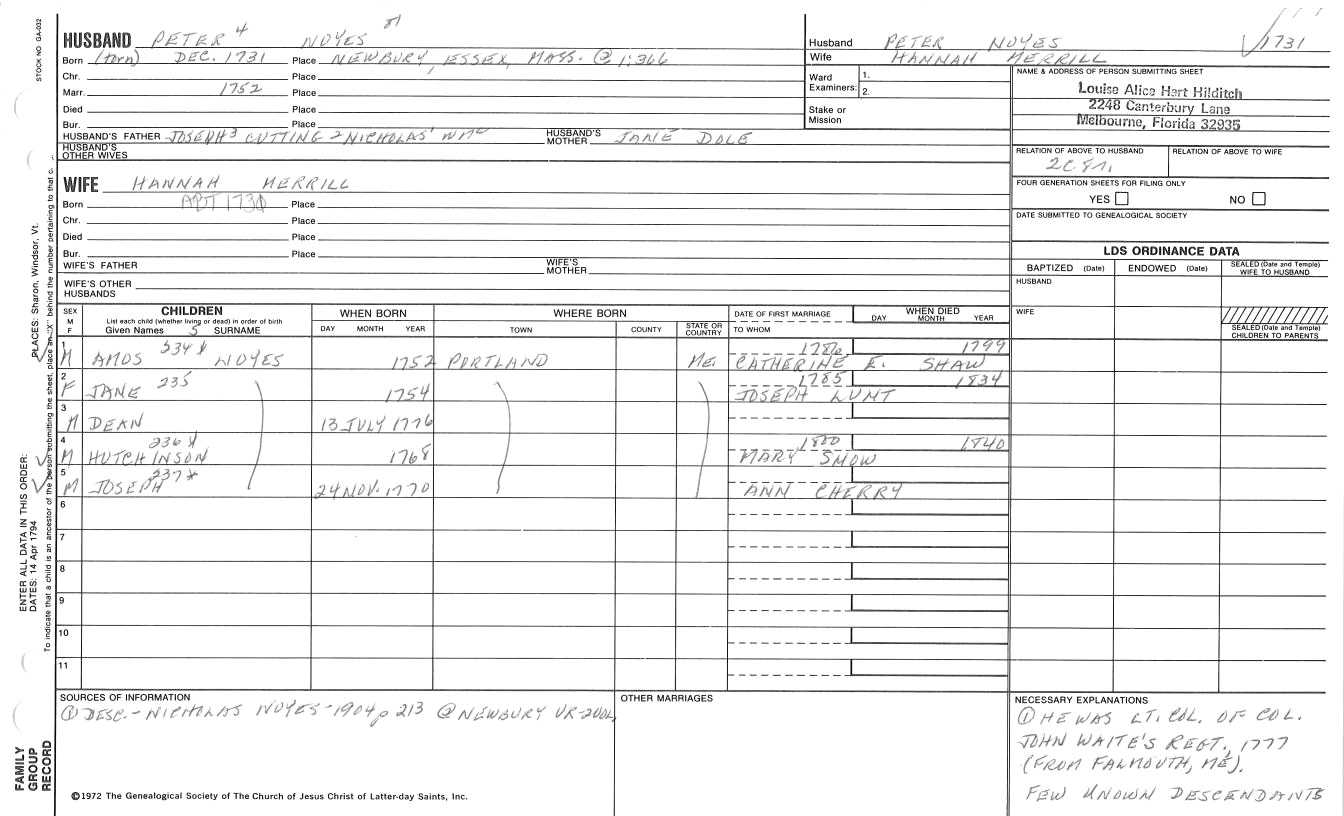 81
HUSBAND PETER 4 NOYES
Born (torn) DEC. 1731 Place NEWBURY, ESSEX, MASS. @ 1:366
Chr. Place
Marr. 1752 Place
Died Place
Bur. Place
HUSBAND'S FATHER JOSEPH3 CUTTING2 NICHOLAS' Wm HUSBAND'S MOTHER JANE DOLE
HUSBAND'S OTHER WIVES
WIFE HANNAH MERRILL
Born ABT 1730 Place
Chr. Place
Died Place
Bur. Place
WIFE'S FATHER WIFE'S MOTHER
WIFE'S OTHER HUSBANDS
Husband PETER NOYES √1731
Wife HANNAH MERRILL
Ward Examiners: 1. 2.
Stake or Mission
NAME & ADDRESS OF PERSON SUBMITTING SHEET
Louise Alice Hart Hilditch
2248 Canterbury Lane
Melbourne, Florida 32935
RELATION OF ABOVE TO HUSBAND RELATION OF ABOVE TO WIFE
FOUR GENERATION SHEETS FOR FILING ONLY
YES NO
DATE SUBMITTED TO GENEALOGICAL SOCIETY
LDS ORDINANCE DATA
BAPTIZED (Date) ENDOWED (Date) SEALED (Date and Temple) WIFE TO HUSBAND
HUSBAND
WIFE
SEALED (Date and Temple) CHILDREN TO PARENTS
SEX M F CHILDREN WHEN BORN WHERE BORN DATE OF FIRST MARRIAGE WHEN DIED
List each child (whether living or dead) in order of birth
Given Names 5 SURNAME DAY MONTH YEAR TOWN COUNTY STATE OR COUNTRY TO WHOM DAY MONTH YEAR
1 234 1786 1799
M AMOS NOYES 1752 PORTLAND ME. CATHERINE E. SHAW
2 235 1785 1834
F JANE 1754 JOSEPH LUNT
3
M DEAN 13 JULY 1776
4 236 1800 1840
M HUTCHINSON 1768 MARY SNOW
5 237*
M JOSEPH 24 NOV. 1770 ANN CHERRY
6
7
8
9
10
11
SOURCES OF INFORMATION
① DESC.- NICHOLAS NOYES-1904 p 213 @ NEWBURY VR-2VOL,
OTHER MARRIAGES
NECESSARY EXPLANATIONS
① HE WAS LT. COL. OF COL.
JOHN WAITE'S REGT., 1777
(FROM FALMOUTH, ME).
FEW UNOWN DESCENDANTS
©1972 The Genealogical Society of The Church of Jesus Christ of Latter-day Saints, Inc.
STOCK NO GA-032
PLACES: Sharon, Windsor, Vt.
ENTER ALL DATA IN THIS ORDER:
DATES: 14 Apr 1794
To indicate that a child is an ancestor of the person submitting the sheet, place an "X" behind the number pertaining to that c
FAMILY
GROUP
RECORD